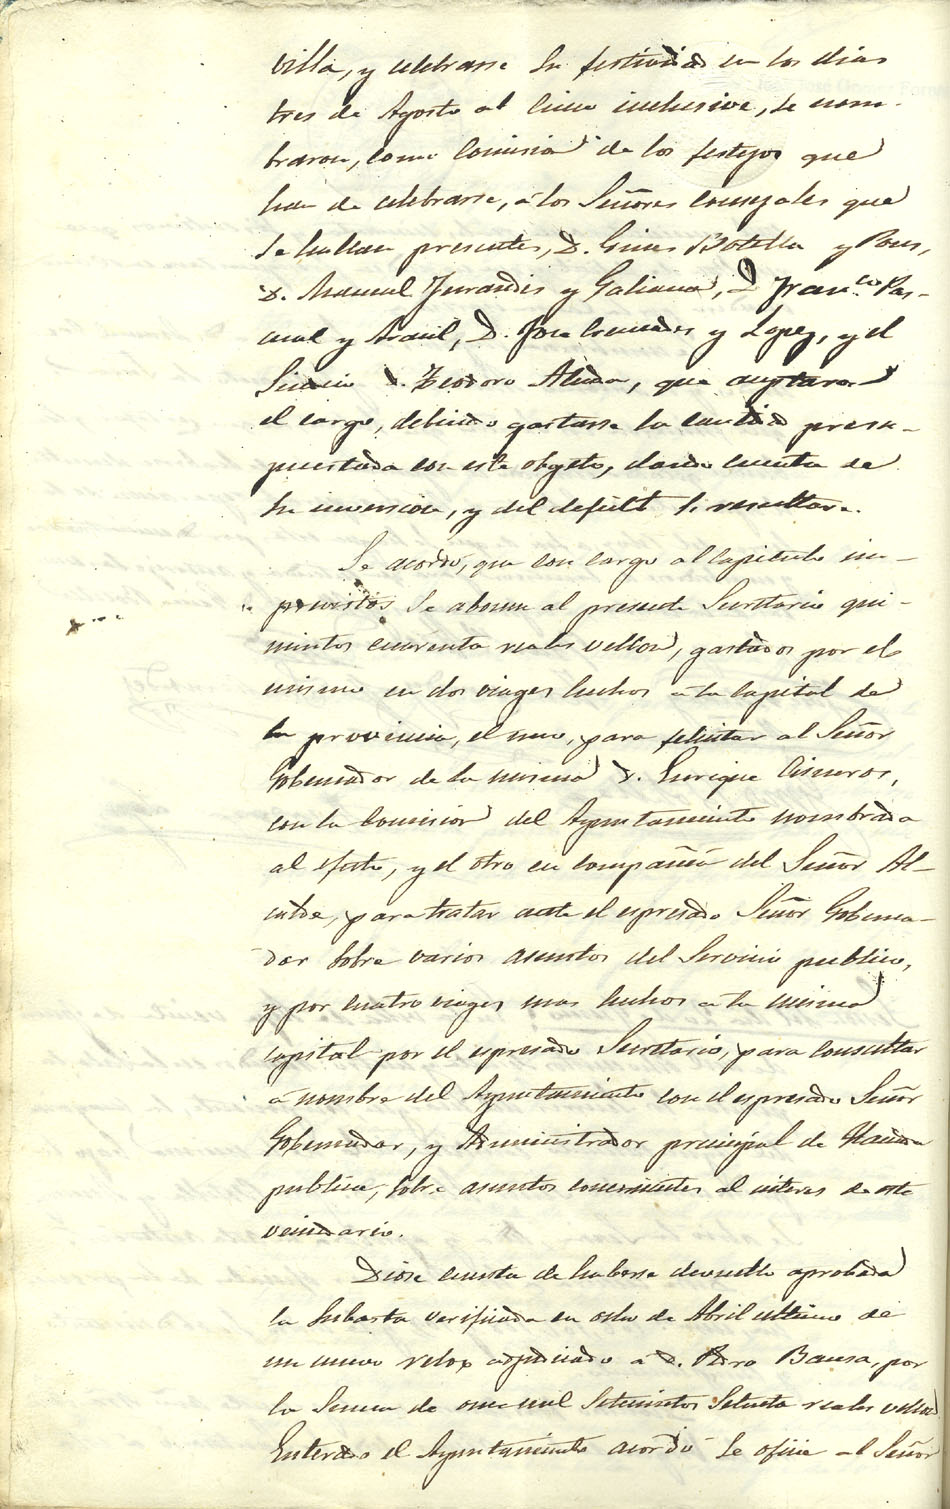 villa, y celebrarse su festividad en los dias
tres de Agosto al cinco inclusive, se nom-
braron, como Comision de los festejos que
han de celebrarse, á los Señores concejales que
se hallan presentes, D. Gines Botella y Pons,
D. Manuel Jurandis y Galiana, D. Fran.co Pas-
cual y Arasil, D. Jose Cremades y Lopez, y el
Sindico D. Teodoro Alcaraz, que aceptaron
el cargo, debiendo gastarse la cantidad presu-
puestada con este objeto, dando cuenta de
su inversion, y del deficit si resultare.
Se acordó, que con cargo al capitulo im-
previstos se abonen al presente Secretario qui-
nientos cuarenta reales vellon, gastados por el
mismo en dos viages hechos a la Capital de
la provincia, el uno, para felicitar al Señor
Gobernador de la misma D. Enrique Cisneros,
con la Comision del Ayuntamiento nombrada
al efecto, y el otro en compañia del Señor Al-
calde, para tratar ante el espresado Señor Goberna-
dor sobre varios asuntos del Servicio publico,
y por cuatro viages mas hechos a la misma
capital por el espresado Secretario, para consultar
á nombre del Ayuntamiento con el espresado Señor
Gobernador, y Administrador principal de Hacienda
publica, sobre asuntos concernientes al interes de este
vecindario.
Diose cuenta de haberse devuelto aprobada
la subasta verificada en ocho de Abril ultimo de
un nuevo relox adjudicado a D. Pedro Bausa, por
la suma de once mil setecientos setenta reales vellon
Enterado el Ayuntamiento acordó se oficie al Señor